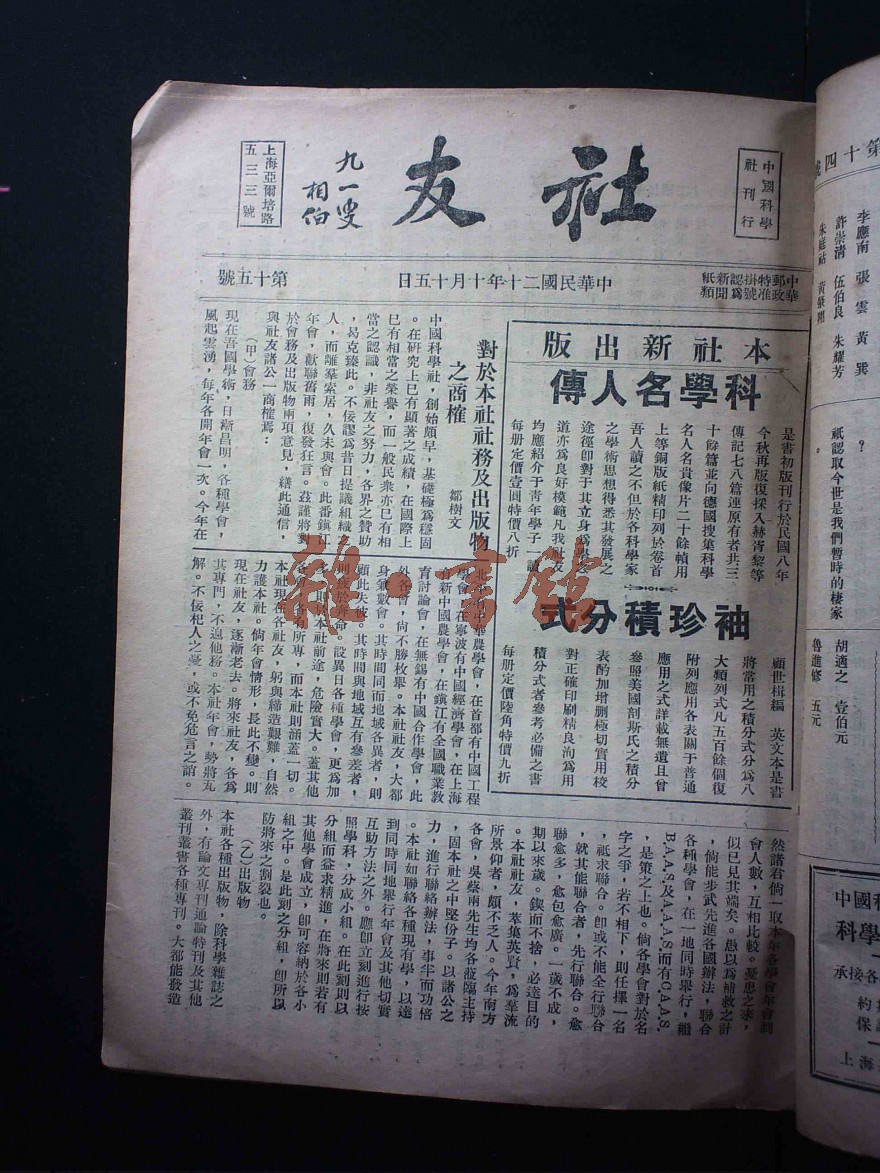 中國科學
社刊行
社友
九一叟
相伯
上海亞爾培路
五三三號
中華郵政特准掛號認爲新聞紙類
中華民國二十年十月十五日
第十五號
本社新出版
科學名人傳
是書初版刊行於民國八年
今秋再版復採入赫胥黎等
傳記七八篇連原有者共三
十餘篇並向德國搜集科學
名人名貴像片二十餘幀用
上等銅版紙精印列於卷首
吾人讀之不但於各科學家
之學術思想得悉其發展之
途徑卽對于其立身爲學之
道亦爲良好模範凡我社友
均應紹介于青年學子一讀
每册定價壹圓特價八折
袖珍積分式
顧世楫編 英文本是書
將常用之積分式分爲八
大類列式凡五百餘個復
附列應用各表關于普通
應用之式詳載無遺且曾
參照美國剖斯氏之積分
表酌加增删極切實用校
對正確印刷精良洵爲用
積分式者參考必備之書
每册定價陸角特價九折
對於本社社務及出版物
之商榷
鄒樹文
中國科學社，創始頗早，基礎極爲穩固
。在研究上已有顯著之成績，在國際上
已有相當之榮譽，而一般民衆亦已有相
當之認識，非社友之努力，各界之贊助
，曷克臻此。不佞謬爲昔日提議組織
人，而離羣索居，久未與會。此番鎮江
年會，歡聯舊雨，復發狂言。茲謹將對
於會務及出版物兩項意見，繕此通信，
與社友諸公一商榷焉：
（甲）會務
現在吾國學術，日漸昌明，各種學會，
風起雲湧，每年各開年會一次。今年在
北平有中華農學會，在首都有中國工程
學會，在寧波有中國經濟學會，在上海
有新中國農學會，在鎮江有全國職業敎
育討論會，在無錫有中國合作學會，此
外各會，尙不勝枚舉。本社社友，大都
身兼數會。其時間同而地域各異者，則
顧此失彼。其時間與地域互有參差者，
則疲於奔命。設異日各種學會，更爲加
多，則於本社前途，危險實大。蓋其他
各會，各有所專，而本社則涵蓋一切。
本社現在各社友，躬與締造艱難，自然
力護本社。倘年會情形，長此不變。則
現在社友，逐漸老去。將來社友，各爲
其專門，不遑他務。本社年會，勢將瓦
解。不佞杞人之憂，或不免危言之誚。
然諸君倘一取本年各學會年會到
會人數，互相比較。憂患之來，
似已見其端矣。愚以爲補救之計
，倘能步武先進各國辦法，聯合
各種學會，在一地同時舉行，繼
B.A.A.S.及A.A.A.S.而有C.A.A.S.
，是策之上也。倘各學會對於名
字之爭，若不相下，則任擇一名
，祇求聯合。卽或不能全行聯合
，就其他能聯合者，先行聯合。愈
聯愈多，愈包愈廣。一歲不成，
期以來歲。鍥而不捨，必達目的
。本社社友，萃集英賢，爲羣流
所景仰者，頗不乏人。今年南方
各會，吳蔡兩先生均各蒞臨主持
，固本社之中堅份子。以諸公之
力，進行聯絡辦法，事半而功倍
。本社如聯絡各種現有學，以達
到同時同地舉行年會及其他切實
互助方法之外。應卽立刻進行按
照學科，分成小組。在此刻則以
分組而益求精進，在將來則若有
其他學會成立，卽可容納於各小
組之中。是此刻之分組，卽所以
防將來之割裂也。
（乙）出版物
本社各種出版物，除科學雜誌之
外，有論文專刊通論特刊及其他
叢刊叢書各種專刊。大都能發造
第十四號
李應南 張雲 黃巽
許崇清 伍伯良 朱耀芳
朱庭祜
？
祇認取今世是我們暫時的棲家
。
胡適之 壹伯元
魯進修 五元
中國科
科學
承接各
約
保
上海
雜·書館